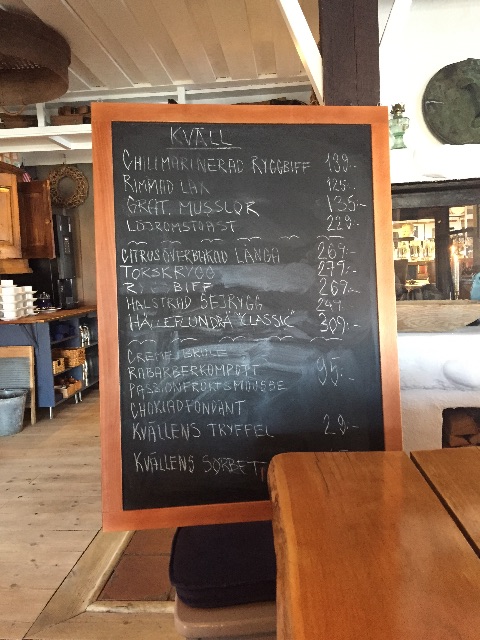 KVÄLL
CHILIMARINERAD RYGGBIFF 139:-
RIMMAD LAX 125:-
GRAT. MUSSLOR 135:-
LÖJROMSTOAST 229:-
CITRUSÖVERBAKAD LÅNGA 269:-
TORSKRYGG 279:-
BIFF 269:-
HALSTRAD SEJRYGG 249:-
HÄLLEFLUNDRA "CLASSIC" 309:-
CREME BRULE
RABARBERKOMPOTT 95:-
PASSIONFRUKTSMOUSSE
CHOKLADFONDANT
KVÄLLENS TRYFFEL 29:-
KVÄLLENS SORBET